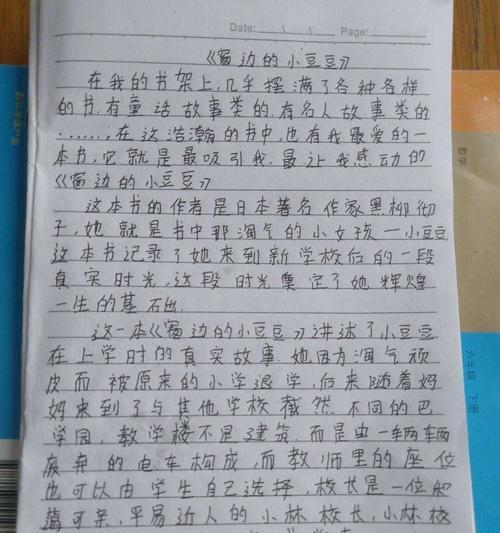 Date: \ \ Page:
《窗边的小豆豆》
在我的书架上,几乎摆满了各种各样
的书.有童话故事类的.有名人故事类的
......;在这浩瀚的书中,也有我最爱的一
本书,它就是最吸引我,最让我感动的
《窗边的小豆豆》
这本书的作者是日本著名作家黑柳彻
子,她就是书中那淘气的小女孩一小豆豆
这本书记录了她来到新学校后的一段
真实时光,这段时光奠定了她辉煌
一生的基石.
这一本《窗边的小豆豆》讲述了小豆豆
在上学时的真实故事.她因为淘气顽
皮而被原来的小学退学,后来随着妈
妈来到了与其他学校截然不同的巴
学园,教学楼不是建筑.而是由一辆辆
废弃的电车构成,而教师里的座位
也可以由学生自己选择,校长是一位和
蔼可亲,平易近人的小林校长,小林校
数学
六年级 下册